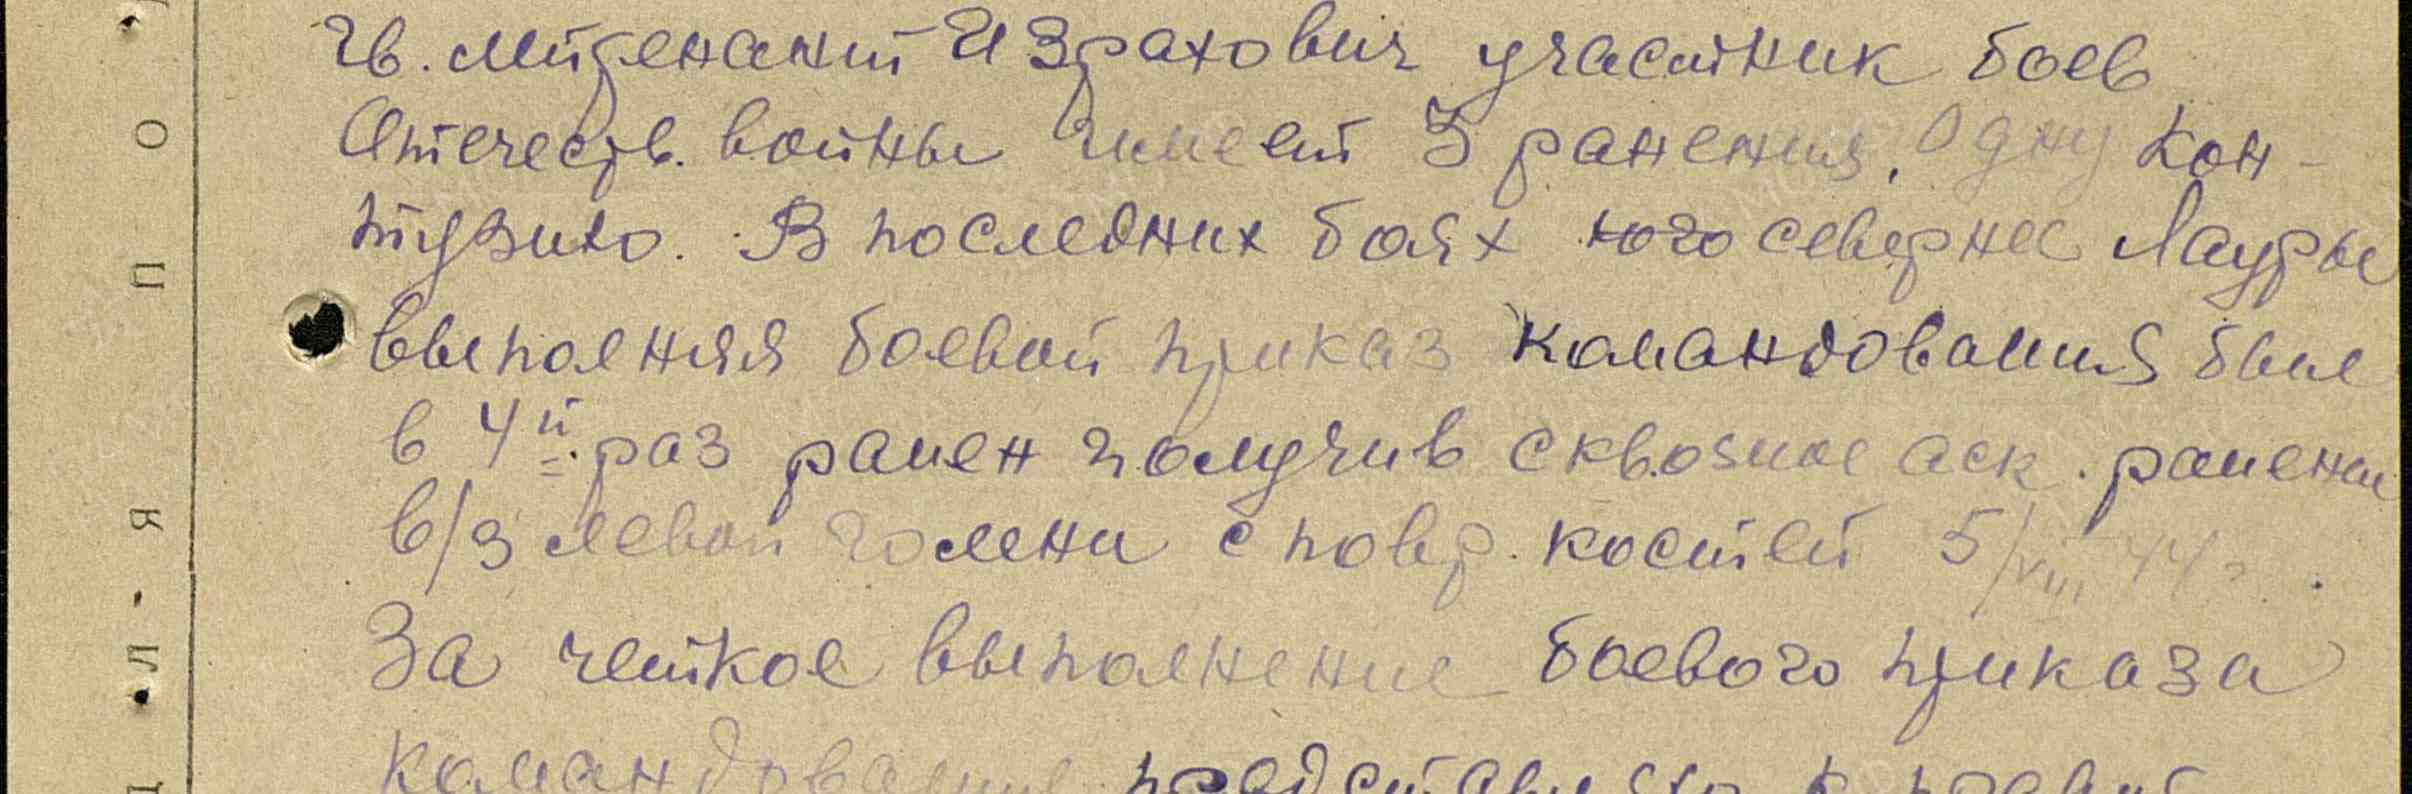 гв. лейтенант Израхович участник боев
Отечеств. войны имеет 3 ранения, одну кон-
тузию. В последних боях юго севернее Лауры
выполняя боевой приказ командования был
в 4й раз ранен получив сквозное аск. ранение
в/з левой голени с повр. костей 5/VIII 44 г.
За четкое выполнение боевого приказа
командования представляю к правит